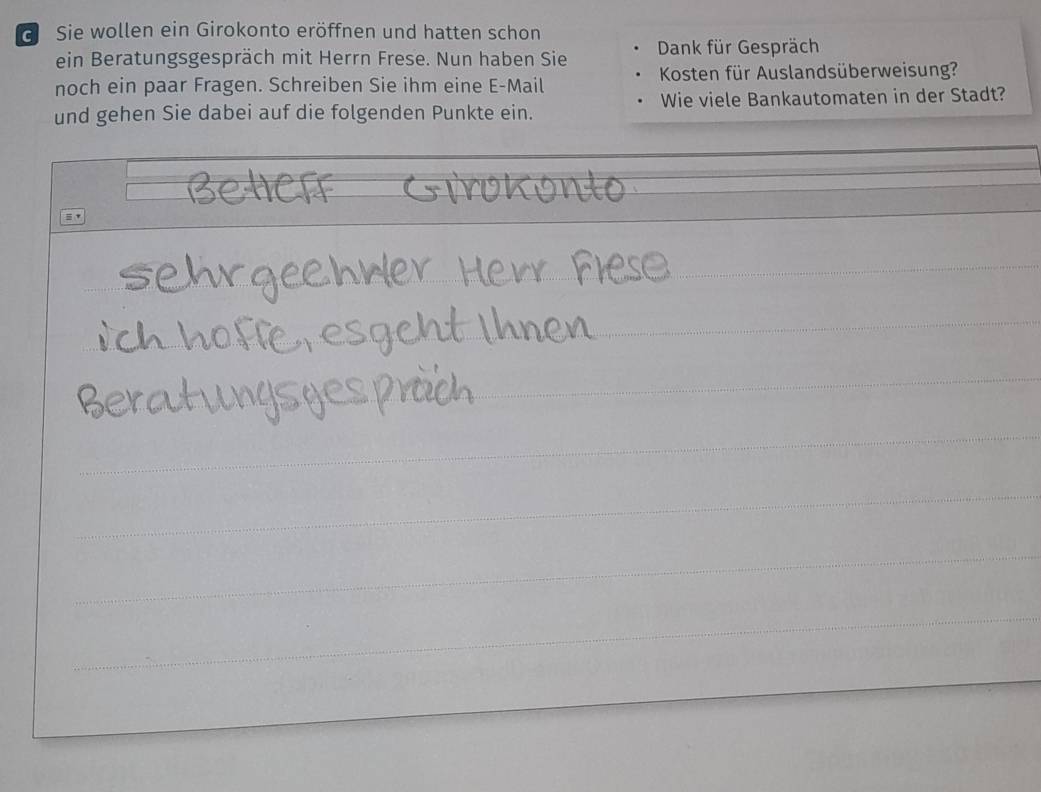 C Sie wollen ein Girokonto eröffnen und hatten schon
ein Beratungsgespräch mit Herrn Frese. Nun haben Sie
noch ein paar Fragen. Schreiben Sie ihm eine E-Mail
und gehen Sie dabei auf die folgenden Punkte ein.
• Dank für Gespräch
• Kosten für Auslandsüberweisung?
• Wie viele Bankautomaten in der Stadt?
Betreff Girokonto
sehr geehrter Herr Frese
ich hoffe, es geht Ihnen
Beratungsgespräch